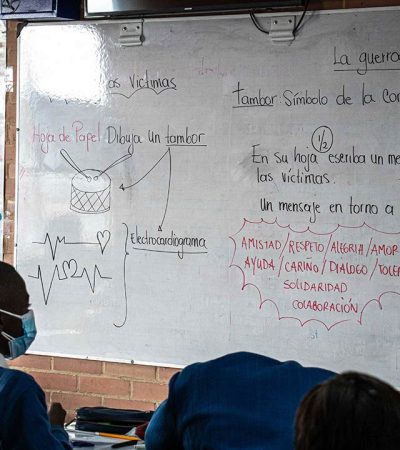 os víctimas
Hoja de Papel Dibuja un tambor
Electrocardiograma
La guerra
tambor Símbolo de la
1/2
En su hoja escriba un
las víctimas.
Un mensaje en torno a
AMISTAD/RESPETO/ALEGRIA/AMOR
AYUDA/CARIÑO/DIALOGO/
SOLIDARIDAD
COLABORACIÓN